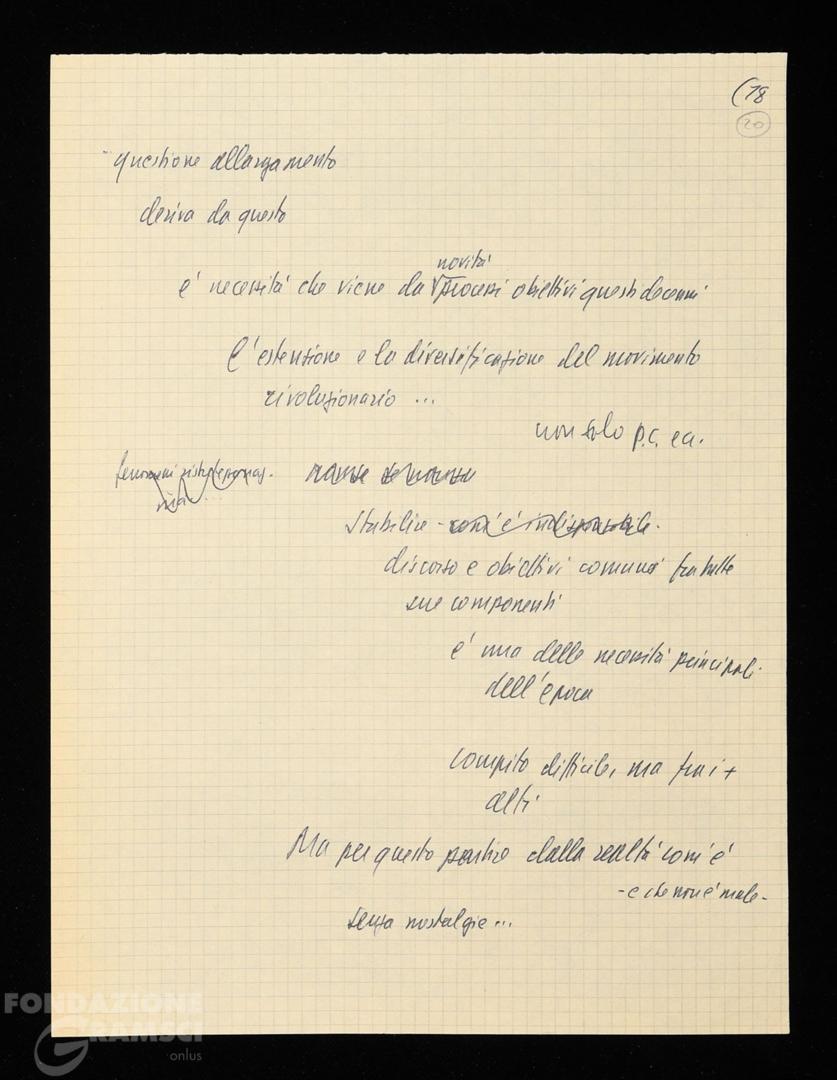 (18
20
- questione allargamento
deriva da questo
novità
è necessità che viene da processi obiettivi questi decenni
l'estensione e la diversificazione del movimento
rivoluzionario ...
non solo p.c. ea.
fenomeni
ma ...
Stabilire - com'è indispensabile -
discorso e obiettivi comuni fra tutte
sue componenti
è una delle necessità principali
dell'epoca
Compito difficile, ma fra i +
alti
Ma per questo partire dalla realtà com'è
- e che non è male -
senza nostalgie ...
FONDAZIONE
GRAMSCI
onlus